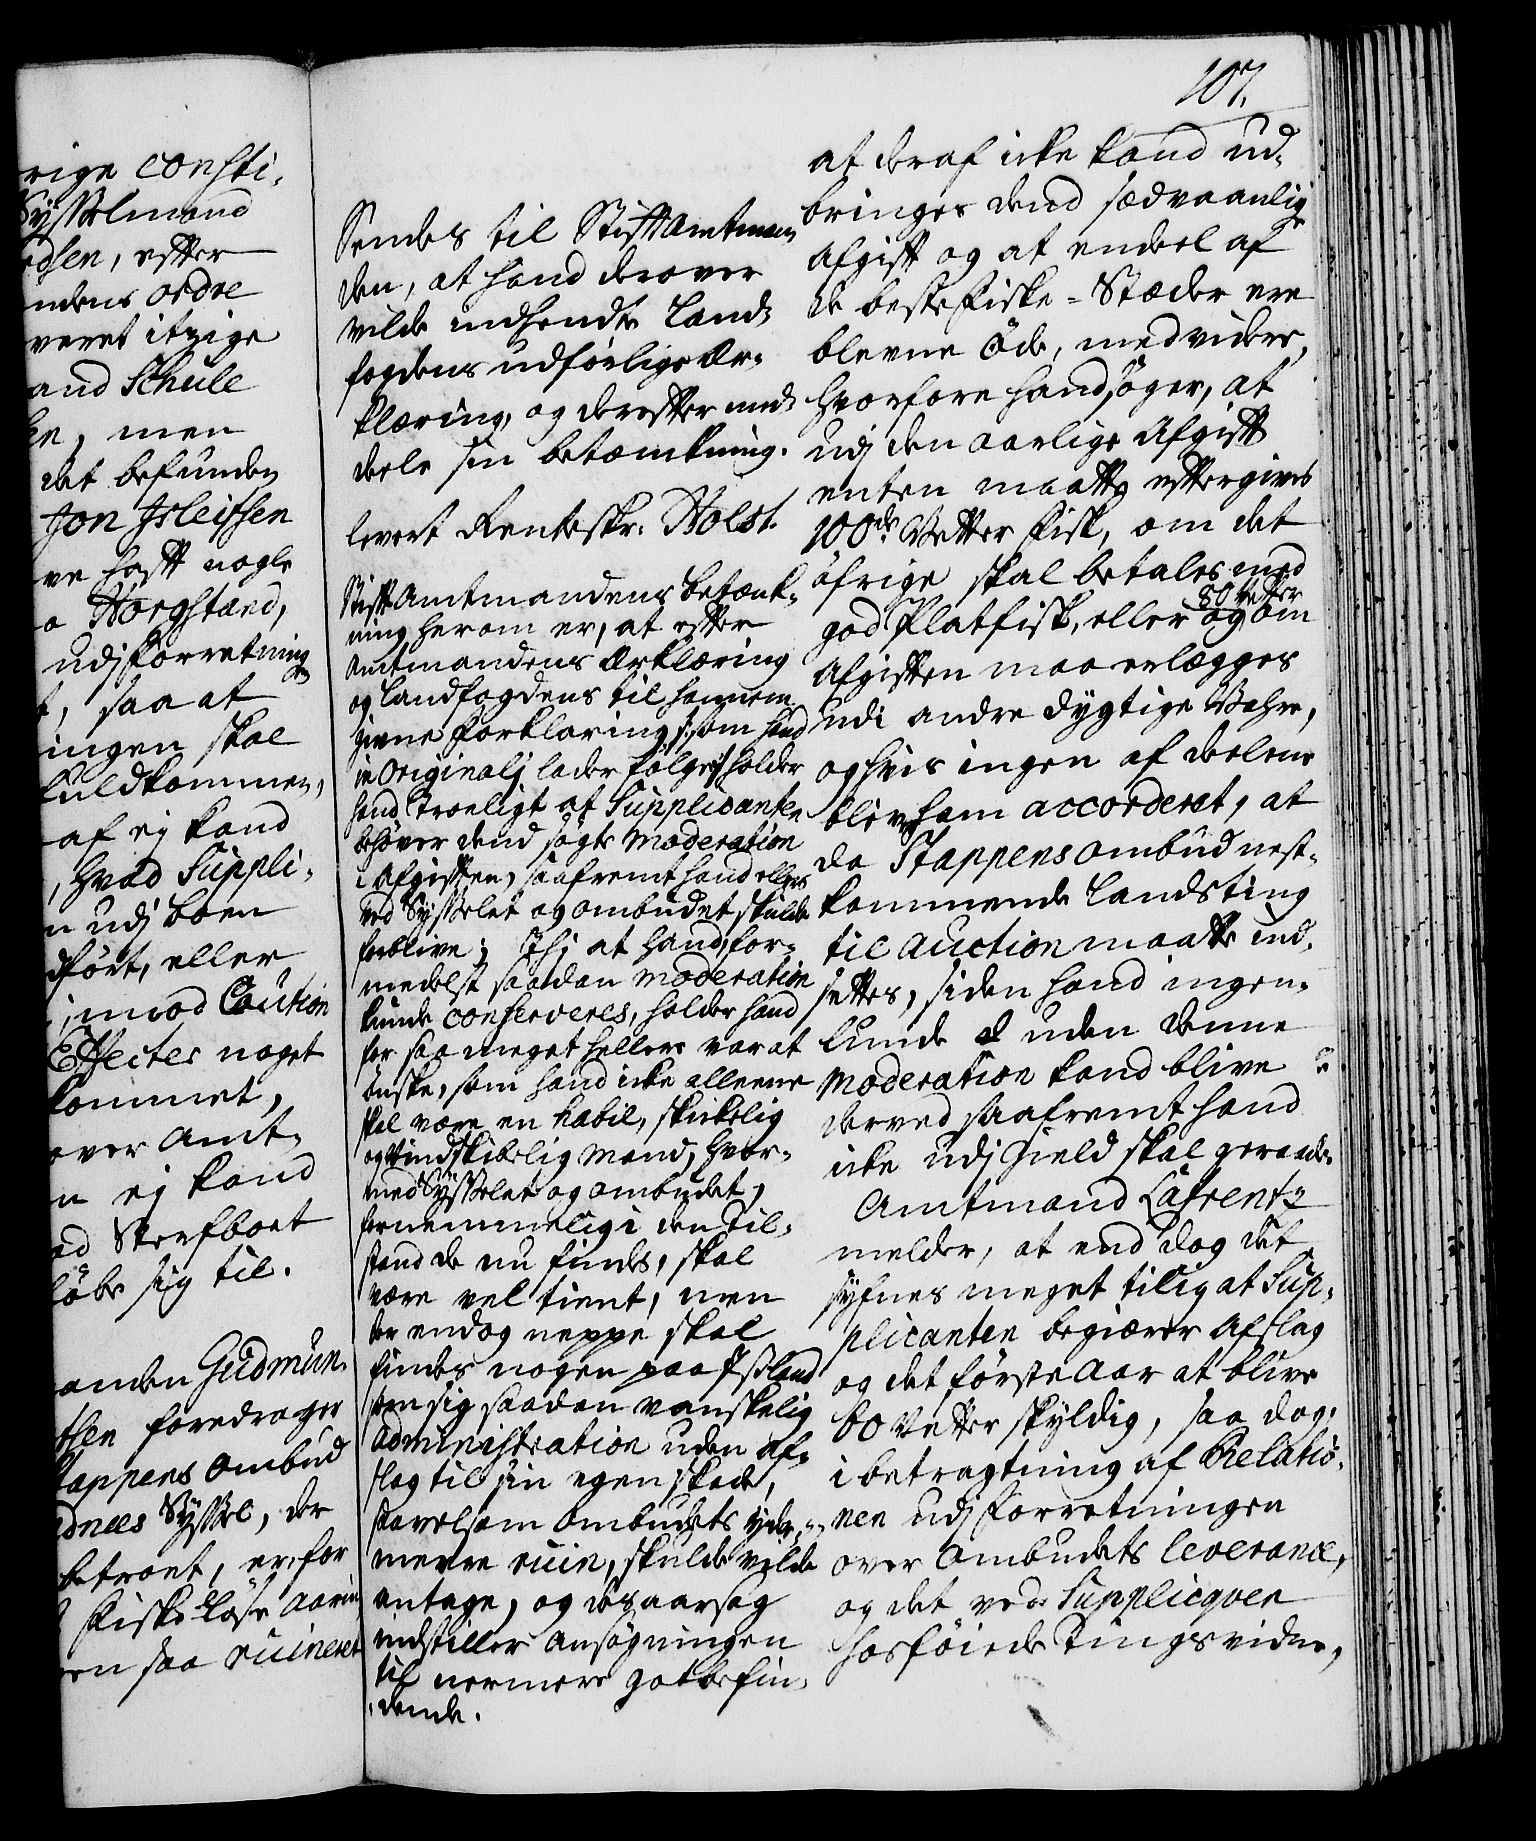 107.
rige consti,
Sysselmand
edsen, efter
ndens ordre
veret itzige
and Schule
en, men
det befunden
Jon Isleifsen
ve hafft nogle
a Horgsland,
udj forretning
t, saa at
ingen skal
fuldkommen,
af ej kand
, hvad Suppli,
n udj boen
dført, eller
, imod Caution
Effecter noget
kommet,
over Amt,
n ej kand
ad Sterfboet
løbe sig til.
anden Gudmun,
tsen foredrager
tappens ombud
dnees Syssel, der
betroet, er for
fiskeløse Aaringer
en saa ruineret
Sendes til Stiftamtman,
den, at hand derover
vilde indhendte Land,
fogdens udførlige Er,
klæring, og derefter med,
deele sin betænkning.
levert Renteskr. Holst.
Stiftamtmandens betænk,
ning herom er, at efter
Amtmandens Erklæring
og Landfogdens til hannem
givne forklaring /: som hand
in Originali lader følge :/ holder
hand troeligt at Supplicanten
behøver dend søgte Moderation
i Afgiften, saafremt hand ellers
ved Sysselet og ombudet skulde
forblive; Thj at hand, for,
medelst saadan Moderation
kunde conserveres, holder hand
for saa meget hellere var at
ønske, som hand icke alleene
skal være en habil, skikkelig
og Vindskibelig Mand, hvor,
med Sysselet og ombudet,
fornemmelig i den til,
stand de nu findes, skal
være vel tient, men
der endog neppe skal
findes nogen paa Island
som sig saadan vanskelig
Administration uden af,
slag til sin egen skade,
saavelsom Ombudets yder,
meere ruin, skulde vilde
antage, og desaarsag
indstiller Ansøgningen
til nermere gotbefin,
dende.
at deraf icke kand ud,
bringes dend sædvaanlige
Afgift og at endeel af
de beste fiske-Stæder ere
blevne Øde, med videre,
hvorfore hand søger, at
udj den aarlige Afgift
enten maatte eftergives
100de Vetter Fisk, om det
øfrige skal betales med
80 Vetter
god Platfisk, eller og om
Afgiften maa erlægges
udi andre dygtige Vahre,
og hvis ingen af deelene
bliver ham accorderet, at
da Stappens ombud nest,
kommende Landsting
til Auction maatte ind,
settes, siden hand ingen,
lunde uden denne
Moderation kand blive
derved saafremt hand
icke udj Gield skal geraade.
Amtmand Lafrentz
melder, at end dog det
syfnes meget tilig at Sup,
plicanten begiærer Afslag
og det første Aar at blive
60 Vetter skyldig, saa dog,
i betragtning af Relatio,
nen udj forretningen
over Ombudets leverance,
og det ved Supplicqven
hosføiede Tingsvidne,